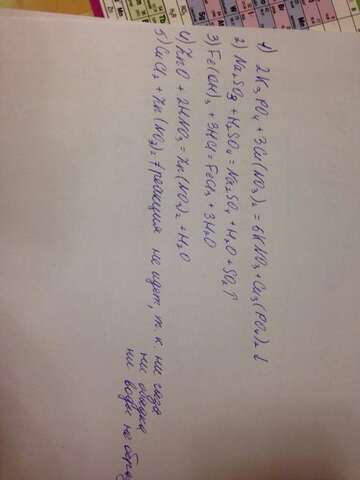 1) 2K₃PO₄ + 3Cu(NO₃)₂ = 6KNO₃ + Cu₃(PO₄)₂↓
2) Na₂SO₃ + H₂SO₄ = Na₂SO₄ + H₂O + SO₂↑
3) Fe(OH)₃ + 3HCl = FeCl₃ + 3H₂O
4) ZnO + 2HNO₃ = Zn(NO₃)₂ + H₂O
5) CuCl₂ + Zn(NO₃)₂ ≠ реакция не идет, т. к. ни газа
ни осадка
ни воды не образ